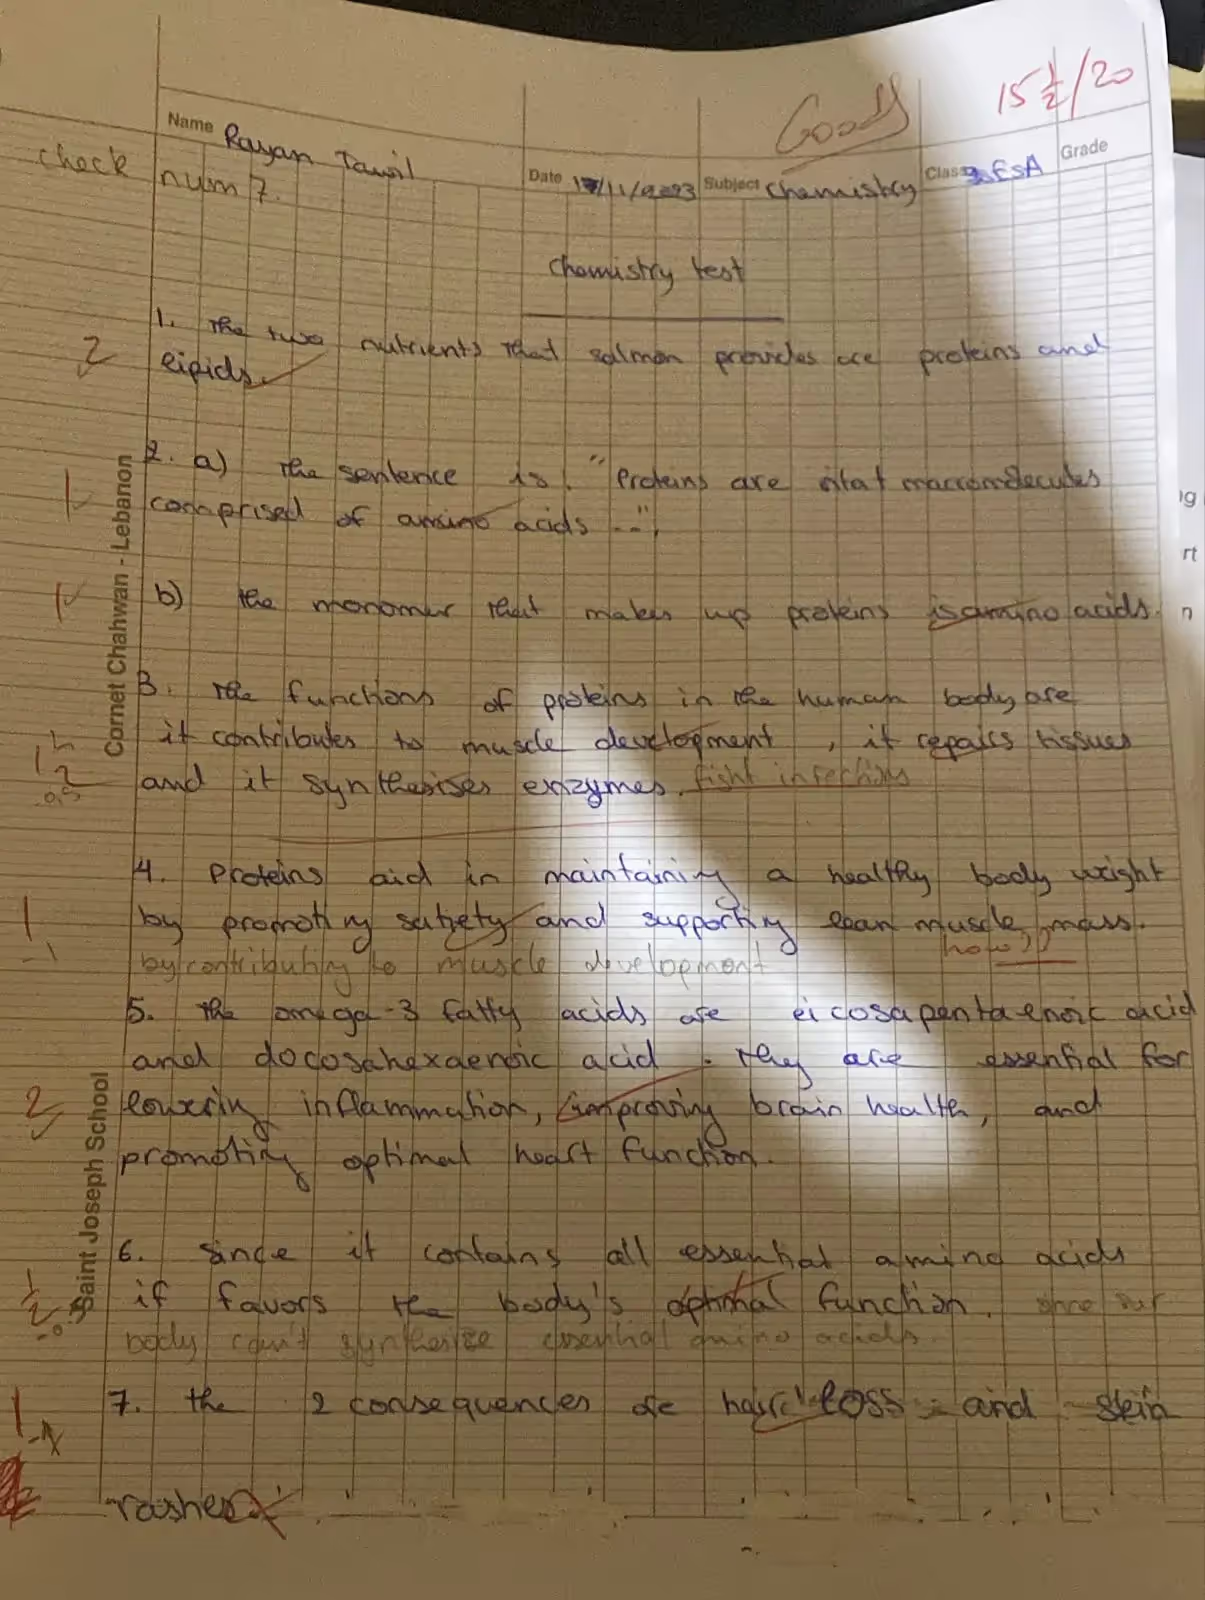 15 1/2 /20
Good
Name Rayan Tawil
Date 17/11/2023 Subject chemistry Class EsA Grade
check num 7.
Chemistry test
1. The two nutrients that salmon provides are proteins and
2 lipids.
2. a) The sentence is: "Proteins are vital macromolecules
1 comprised of amino acids --",
1 b) the monomer that makes up proteins is amino acids.
3. The functions of proteins in the human body are
it contributes to muscle development, it repairs tissues
1 1/2 and it synthesises enzymes. fight infections
0,5
4. Proteins aid in maintaining a healthy body weight
1 by promoting satiety and supporting lean muscle mass.
how??
-1 by contributing to muscle development
5. The omega-3 fatty acids are eicosapentaenoic acid
and docosahexaenoic acid. They are essential for
2 lowering inflammation, improving brain health, and
promoting optimal heart function.
6. Since it contains all essential amino acids
1/2 if favors the body's optimal function. our
body can't synthesize essential amino acids.
7. the 2 consequences are hair loss and skin
1 -1
rashes
Cornet Chahwan - Lebanon
Saint Joseph School
ng
rt
n